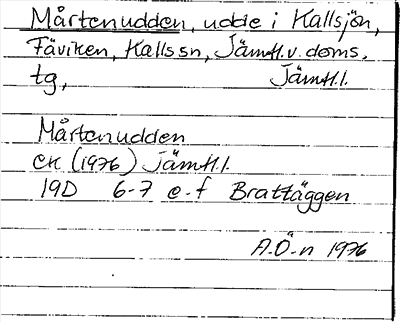 Mårtenudden, udde i Kallsjön,
Fäviken, Kalls sn, Jämtl.v. doms.
tg, Jämtl.l.
Mårtenudden
EK (1976) Jämtl.l.
19D 6-7 e-f Brattäggen
A.Ö-n 1976